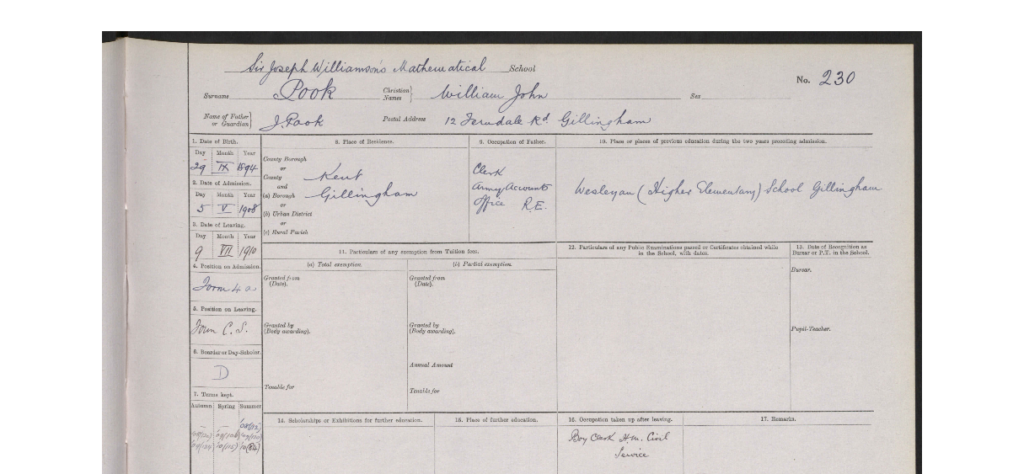 Sir Joseph Williamson's Mathematical School
No. 230
Surname Pook Christian Names William John Sex
Name of Father or Guardian J. Pook Postal Address 12 Ferndale Rd. Gillingham
1. Date of Birth.
Day Month Year
29 IX 1894
2. Date of Admission.
Day Month Year
5 V 1908
3. Date of Leaving.
Day Month Year
9 VII 1910
4. Position on Admission.
Form 4a.
5. Position on Leaving.
Form C.S.
6. Boarder or Day-Scholar.
D
7. Terms kept.
Autumn Spring Summer
8. Place of Residence.
County Borough
or
County Kent
and
(a) Borough Gillingham
or
(b) Urban District
or
(c) Rural Parish
9. Occupation of Father.
Clerk
Army Accounts
Office R.E.
10. Place or places of previous education during the two years preceding admission.
Wesleyan (Higher Elementary) School Gillingham
11. Particulars of any exemption from Tuition fees.
(a) Total exemption.
Granted from
(Date).
Granted by
(Body awarding).
Tenable for
(b) Partial exemption.
Granted from
(Date).
Granted by
(Body awarding).
Annual Amount
Tenable for
12. Particulars of any Public Examinations passed or Certificates obtained while
in the School, with dates.
13. Date of Recognition as
Bursar or P.T. in the School.
Bursar.
Pupil-Teacher.
14. Scholarships or Exhibitions for further education.
15. Place of further education.
16. Occupation taken up after leaving.
Boy Clerk H.M. Civil
Service
17. Remarks.